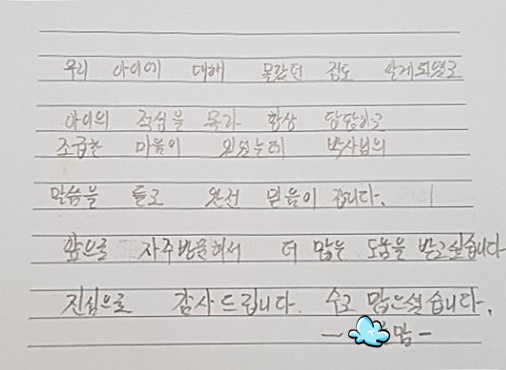 우리 아이에 대해 몰랐던 점도 알게되었고
아이의 적성을 몰라 항상 답답하고
조급한 마음이 있었는데 박사님의
말씀을 듣고 완전 믿음이 갑니다.
앞으로 자주방문해서 더 많은 도움을 받고싶습니다
진심으로 감사드립니다. 수고 많으셨습니다.
- 맘 -